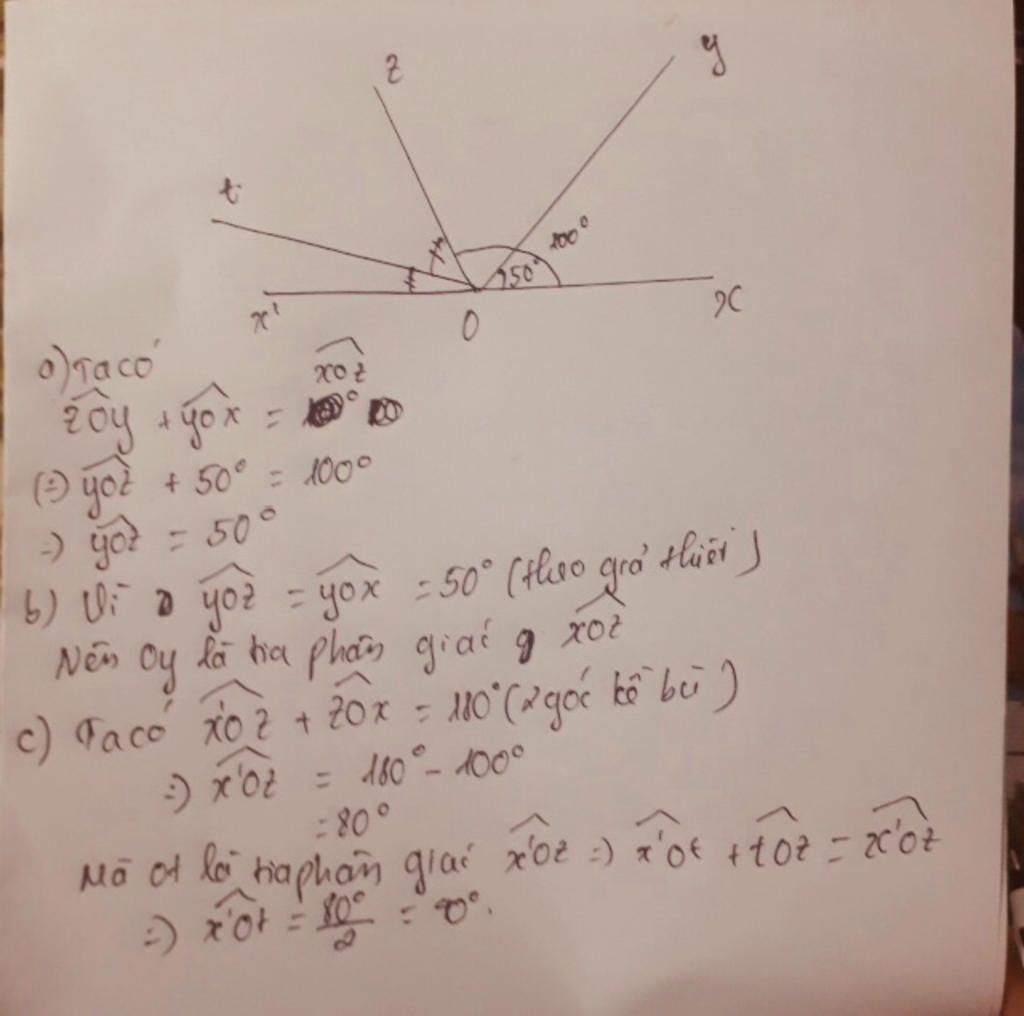 z
y
t
100°
50°
x'
O
x
a) Ta có
zOy + yOx = xOz
(=) yOz + 50° = 100°
=) yOz = 50°
b) Vì yOz = yOx = 50° (theo giả thiết)
Nên Oy là tia phân giác xOz
c) Ta có x'Oz + zOx = 180° (2 góc kề bù)
=) x'Oz = 180° - 100°
= 80°
Mà Ot là tia phân giác x'Oz =) x'Ot + tOz = x'Oz
=) x'Ot = 80°/2 =